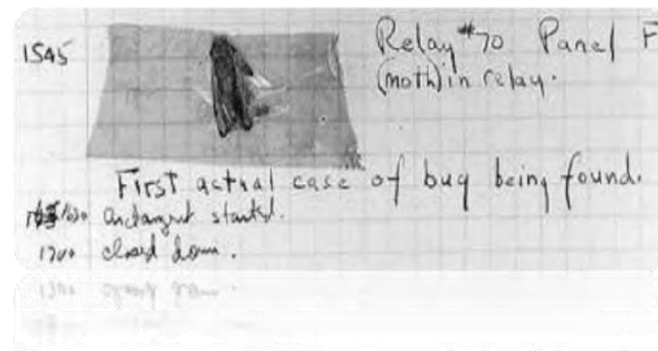 1545
Relay #70 Panel F
(moth) in relay.
First actual case of bug being found.
1630 antangent started.
1700 closed down.